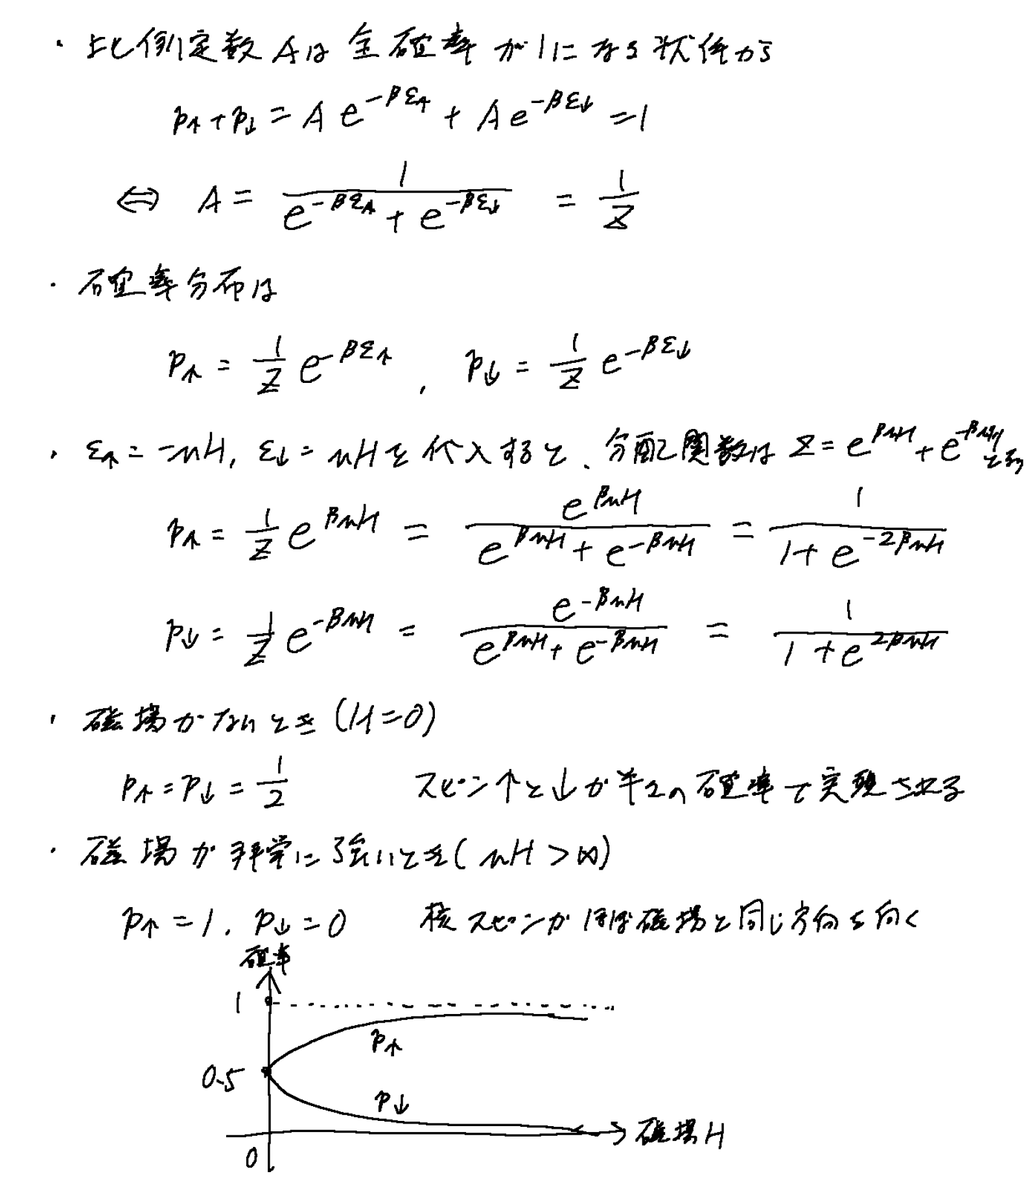 ・比例定数Aは全確率が1になる状件から
p↑+p↓ = A e^{-βε↑} + A e^{-βε↓} = 1
⇔ A = 1/(e^{-βε↑} + e^{-βε↓}) = 1/Z
・確率分布は
p↑ = 1/Z e^{-βε↑}, p↓ = 1/Z e^{-βε↓}
・ε↑ = -mH, ε↓ = mHを代入すると、分配関数は Z = e^{βmH} + e^{-βmH} となり
p↑ = 1/Z e^{βmH} = e^{βmH}/(e^{βmH} + e^{-βmH}) = 1/(1 + e^{-2βmH})
p↓ = 1/Z e^{-βmH} = e^{-βmH}/(e^{βmH} + e^{-βmH}) = 1/(1 + e^{2βmH})
・磁場がないとき (H=0)
p↑ = p↓ = 1/2 スピン↑と↓が半々の確率で実現される
・磁場が非常に強いとき (mH > ∞)
p↑ = 1, p↓ = 0 核スピンがほぼ磁場と同じ方向を向く
確率
1
p↑
0.5
p↓
磁場H
0